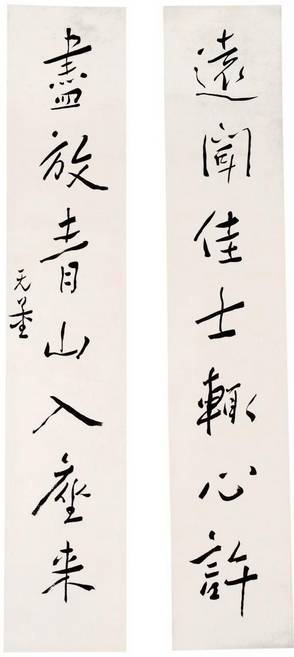 遠聞佳士輒心許
盡放青山入座来
无量